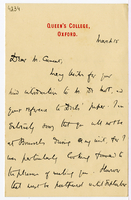 4234
QUEEN'S COLLEGE,
OXFORD.
March 15
Dear Mr. Cumont,
Many thanks for your
introduction to M. De Mot, &
your reference to
extremely sorry that you will not be
at Brussels during my visit, for I
was particularly looking forward to
the pleasure of seeing you. However
that must be postponed until September